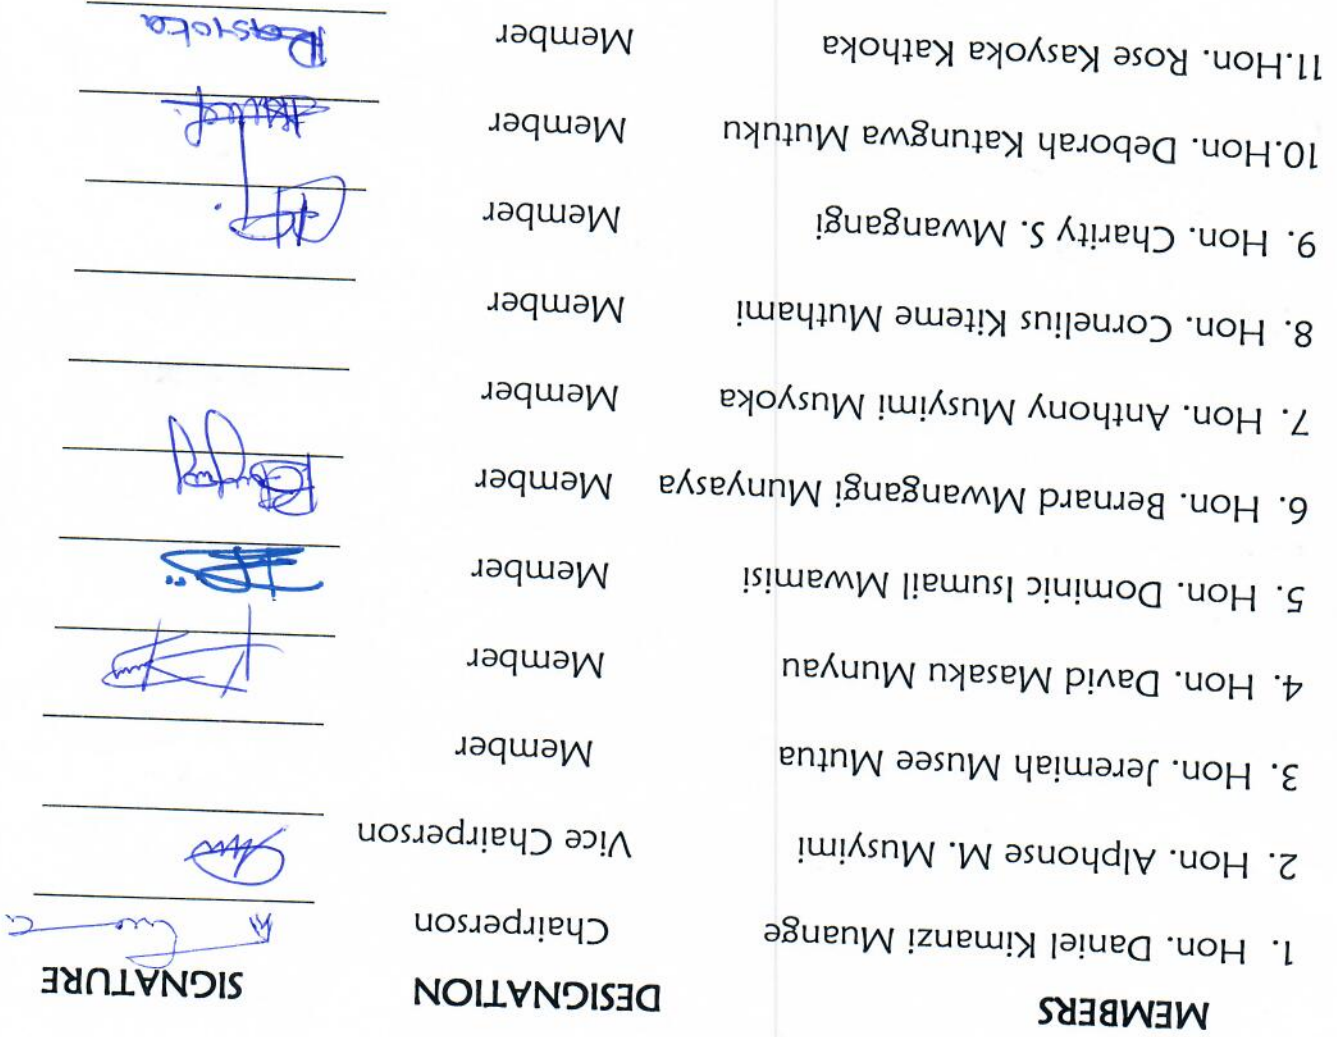 MEMBERS DESIGNATION SIGNATURE
1. Hon. Daniel Kimanzi Muange Chairperson
2. Hon. Alphonse M. Musyimi Vice Chairperson
3. Hon. Jeremiah Musee Mutua Member
4. Hon. David Masaku Munyau Member
5. Hon. Dominic Isumail Mwamisi Member
6. Hon. Bernard Mwangangi Munyasya Member
7. Hon. Anthony Musyimi Musyoka Member
8. Hon. Cornelius Kiteme Muthami Member
9. Hon. Charity S. Mwangangi Member
10.Hon. Deborah Katungwa Mutuku Member
11.Hon. Rose Kasyoka Kathoka Member